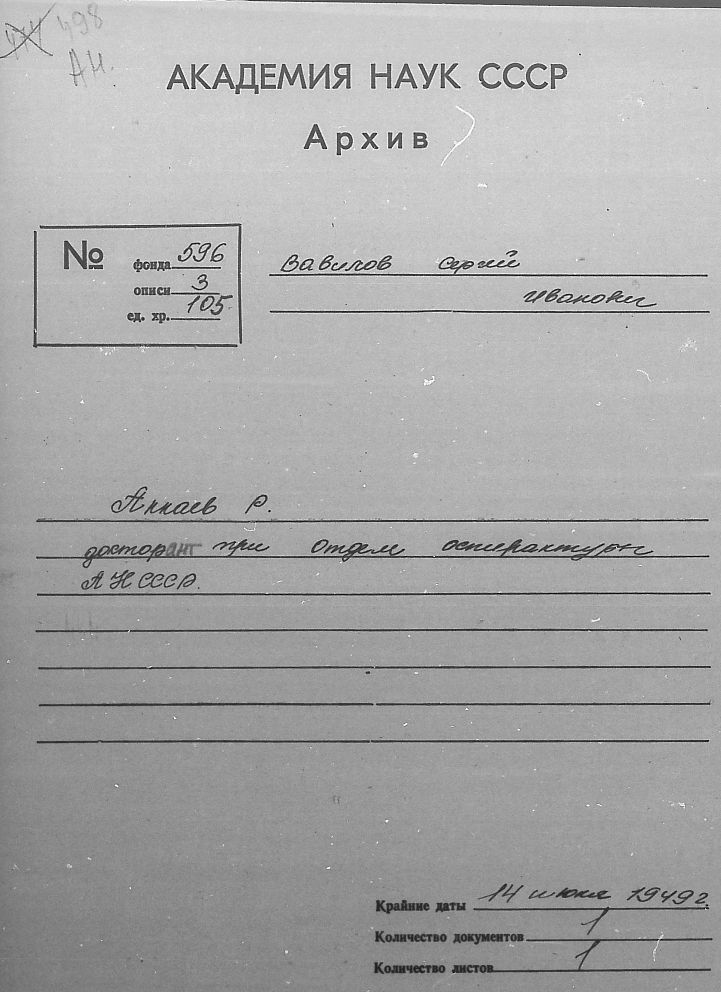 474 498
АН.
АКАДЕМИЯ НАУК СССР
Архив
№ фонда 596
описи 3
ед. хр. 105
Вавилов Сергей
Иванович
Аннаев Р.
докторант при Отделе аспирантуры
АН СССР.
Крайние даты 14 июня 1949 г.
Количество документов 1
Количество листов 1